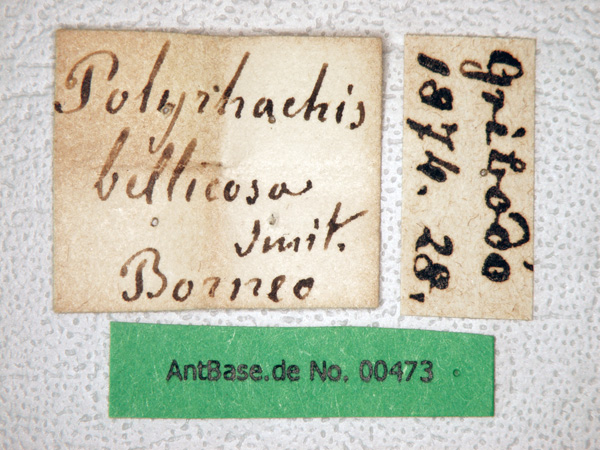 Polyrhachis
bellicosa
Smit.
Borneo
Gribodo
1874. 28.
AntBase.de No. 00473